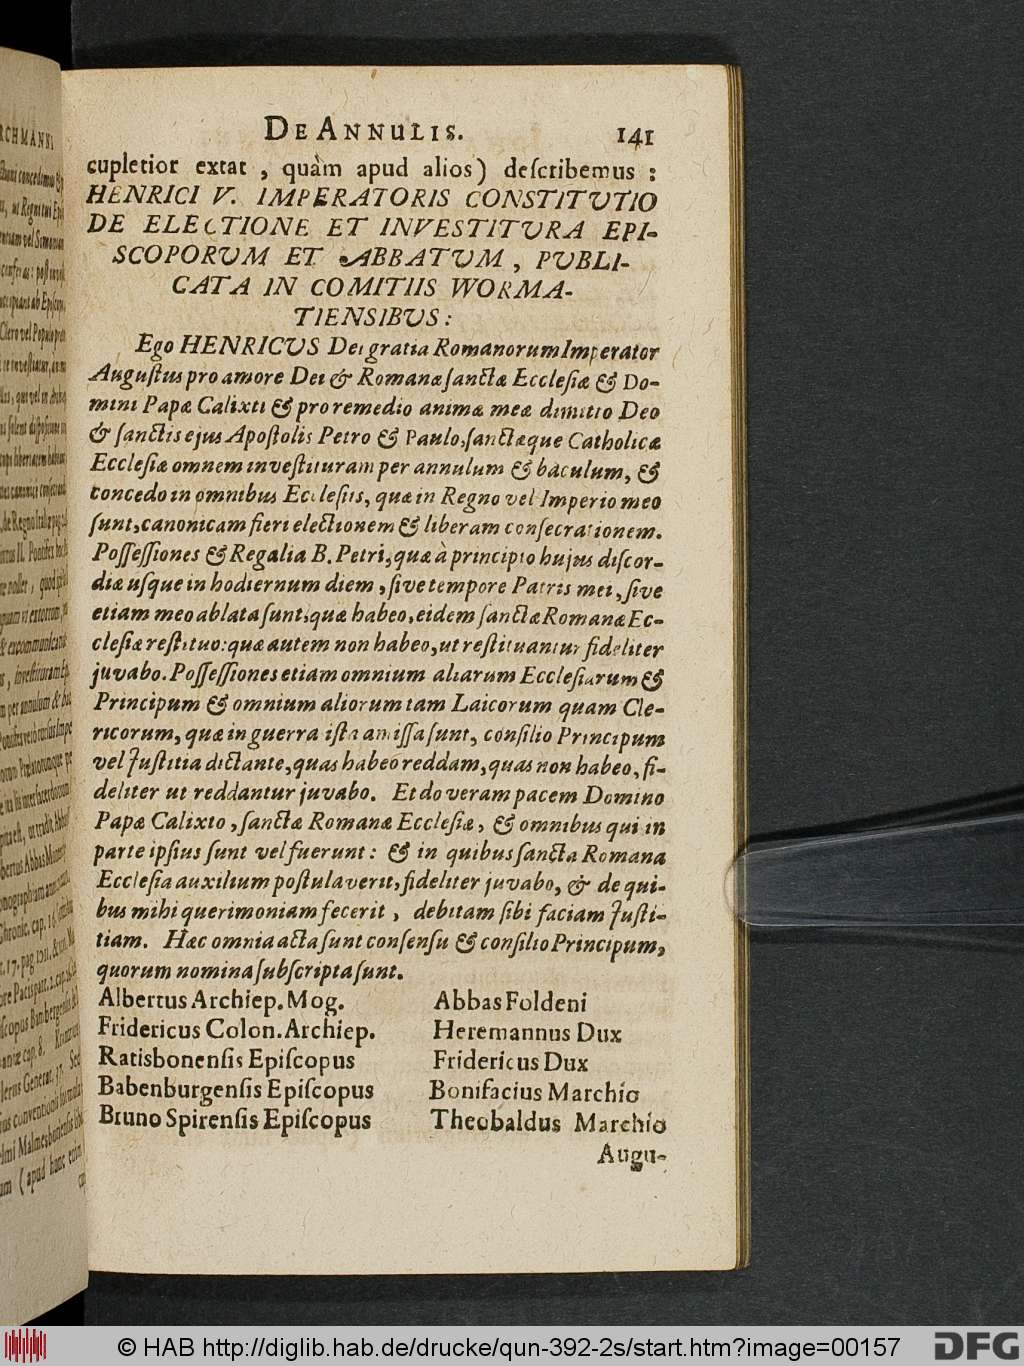 DE ANNULIS. 141
cupletior extat, quàm apud alios) deſcribemus:
HENRICI V. IMPERATORIS CONSTITVTIO
DE ELECTIONE ET INVESTITVRA EPI-
SCOPORVM ET ABBATVM, PVBLI-
CATA IN COMITIIS WORMA-
TIENSIBVS:
Ego HENRICVS Dei gratia Romanorum Imperator
Auguſtus pro amore Dei & Romanæ ſanctæ Eccleſiæ & Do-
mini Papæ Calixti & pro remedio animæ meæ dimitto Deo
& ſanctis ejus Apoſtolis Petro & Paulo, ſanctæque Catholicæ
Eccleſiæ omnem inveſtituram per annulum & baculum, &
concedo in omnibus Eccleſiis, quæ in Regno vel Imperio meo
ſunt, canonicam fieri electionem & liberam conſecrationem.
Poſſeſſiones & Regalia B. Petri, quæ à principio hujus diſcor-
diæ uſque in hodiernum diem, ſive tempore Patris mei, ſive
etiam meo ablata ſunt, quæ habeo, eidem ſanctæ Romanæ Ec-
cleſiæ reſtituo: quæ autem non habeo, ut reſtituantur fideliter
juvabo. Poſſeſſiones etiam omnium aliarum Eccleſiarum &
Principum & omnium aliorum tam Laicorum quam Cle-
ricorum, quæ in guerra iſta amiſſa ſunt, conſilio Principum
vel Juſtitia dictante, quas habeo reddam, quas non habeo, fi-
deliter ut reddantur juvabo. Et do veram pacem Domino
Papæ Calixto, ſanctæ Romanæ Eccleſiæ, & omnibus qui in
parte ipſius ſunt vel fuerunt: & in quibus ſancta Romana
Eccleſia auxilium poſtulaverit, fideliter juvabo, & de qui-
bus mihi querimoniam fecerit, debitam ſibi faciam Juſti-
tiam. Hæc omnia acta ſunt conſenſu & conſilio Principum,
quorum nomina ſubſcripta ſunt.
Albertus Archiep. Mog. Abbas Foldeni
Fridericus Colon. Archiep. Heremannus Dux
Ratisbonenſis Epiſcopus Fridericus Dux
Babenburgenſis Epiſcopus Bonifacius Marchio
Bruno Spirenſis Epiſcopus Theobaldus Marchio
Augu-
© HAB http://diglib.hab.de/drucke/qun-392-2s/start.htm?image=00157
DFG